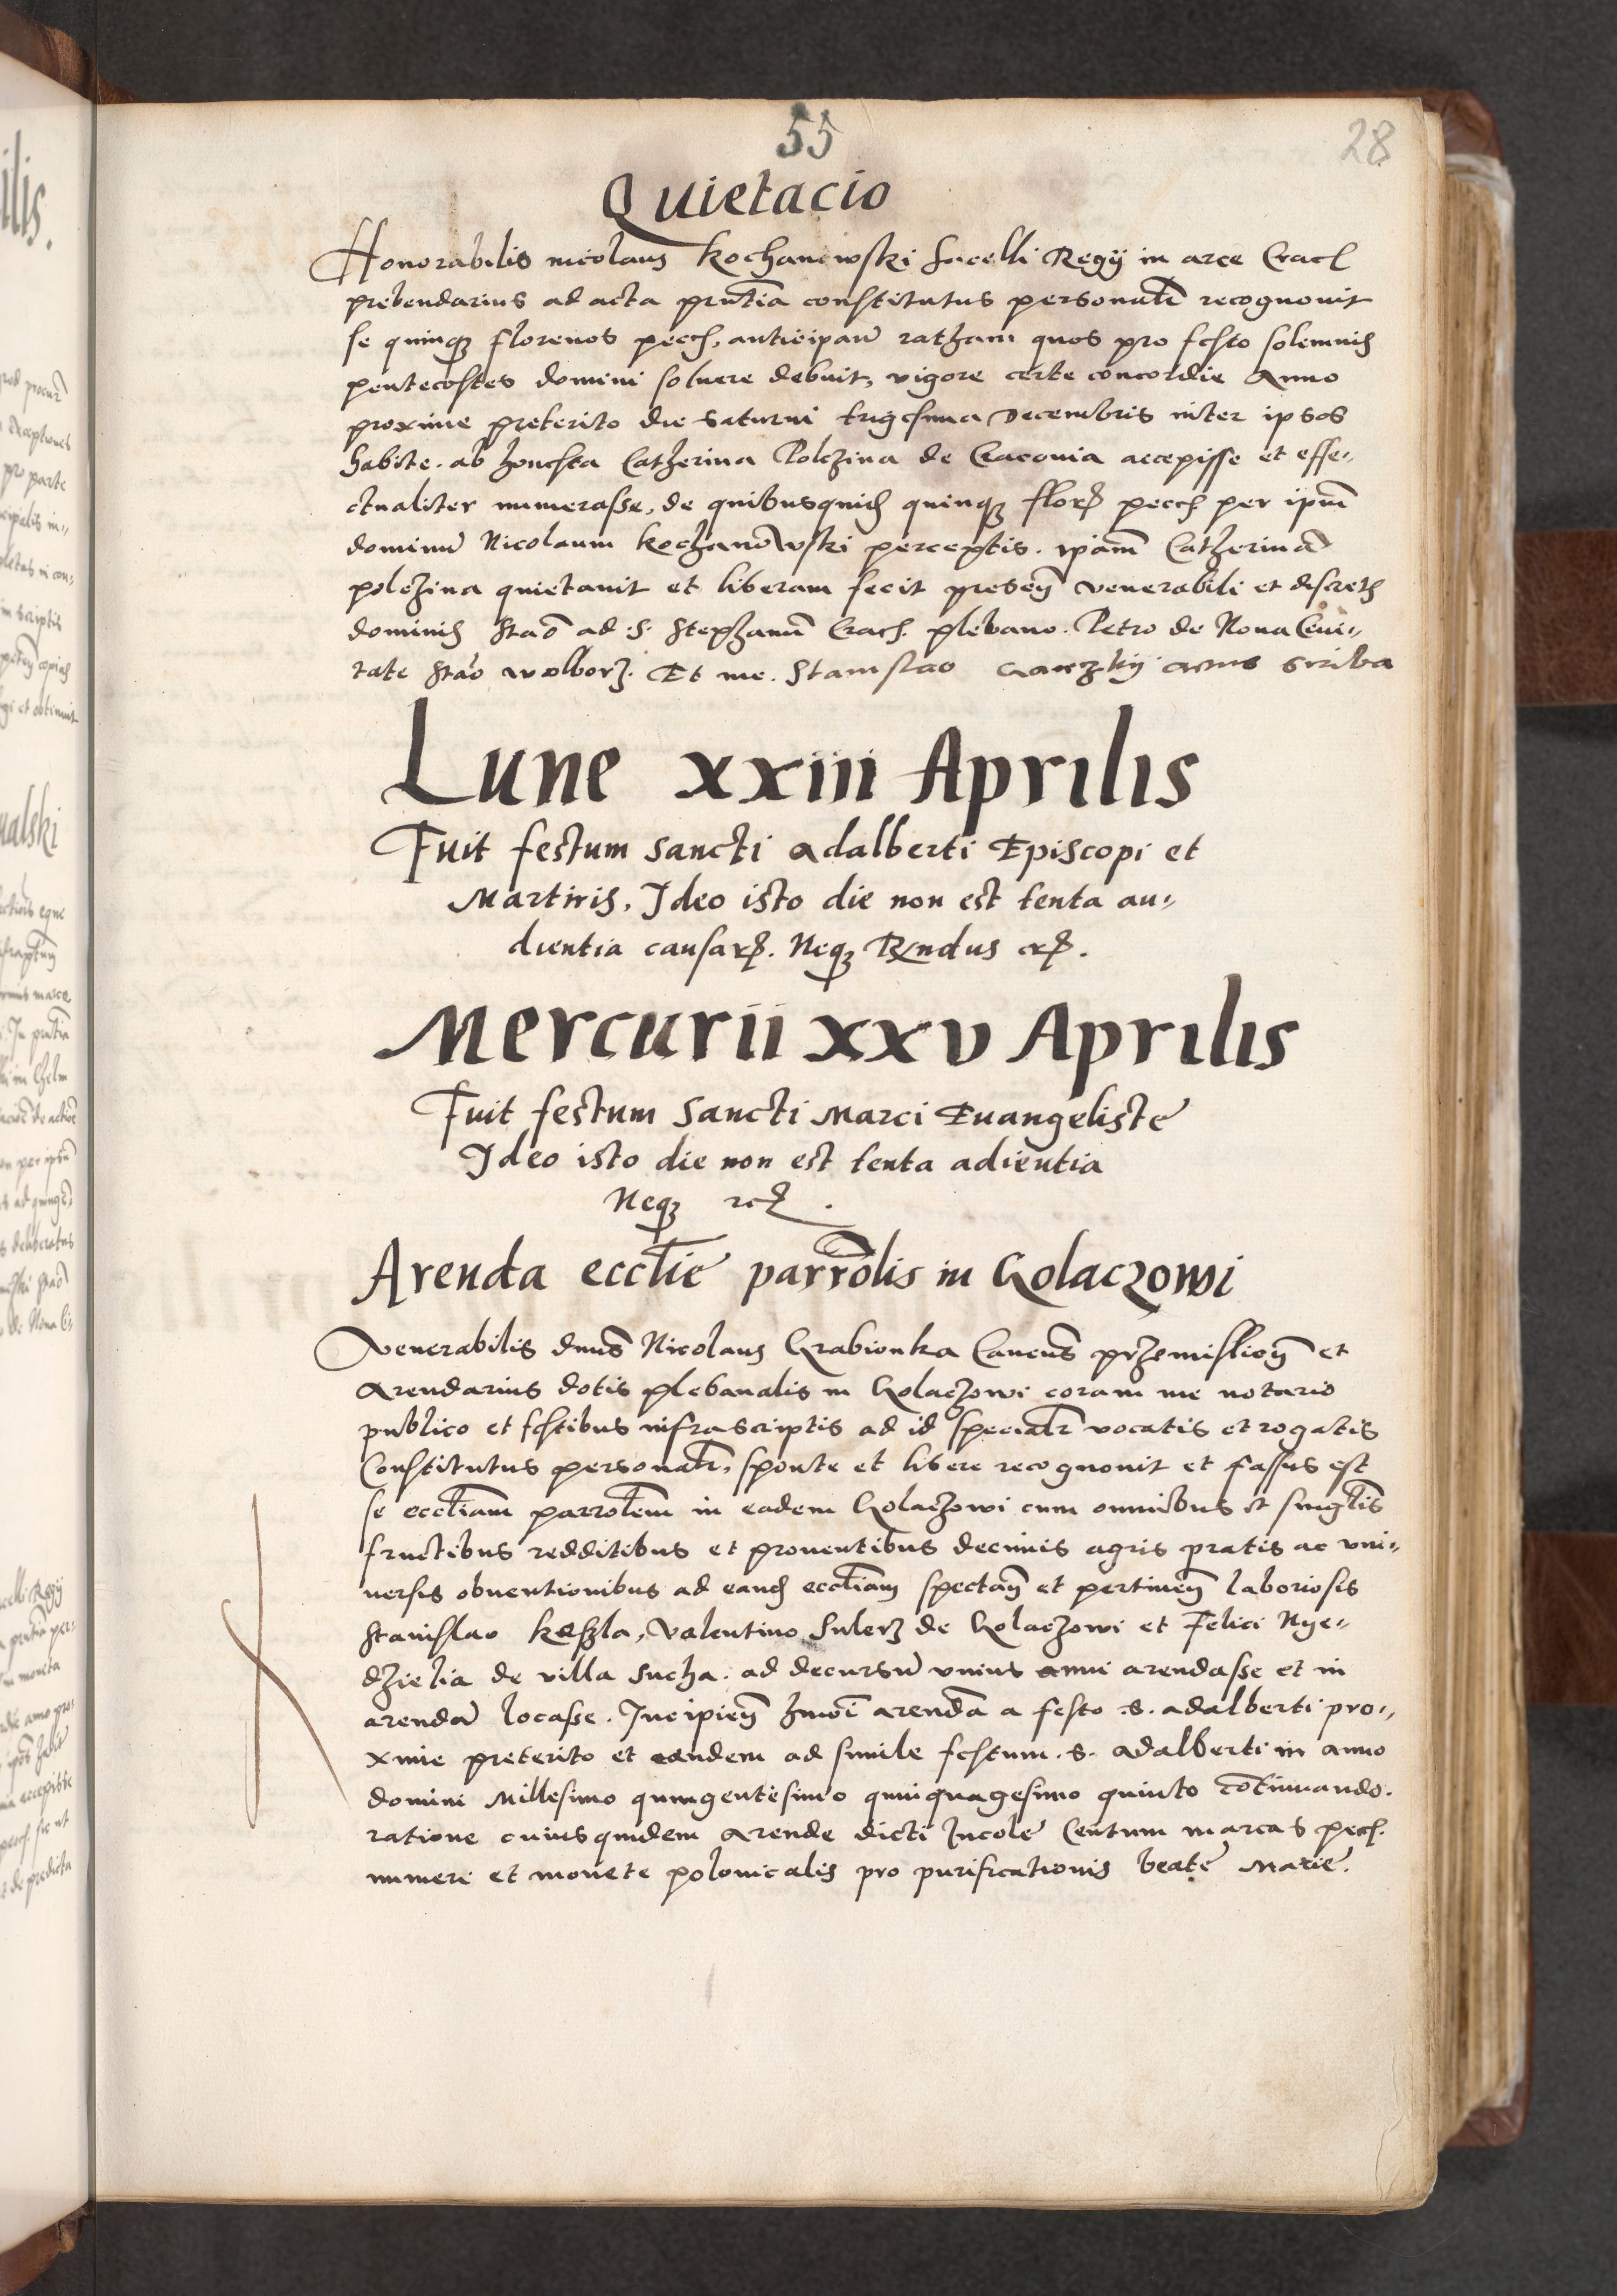 55
28
Quietacio
Honorabilis nicolaus Kochanowski Sacelli Regÿ in arce Crac
prebendarius ad acta pñtia constitutus personalr recognouit
se quinqꝫ florenos pecch, anticipaũ ratham quos pro festo solemnis
pentecostes domini soluere debuit, vigore certe concordie Anno
proxime preterito die Saturni trigesima Decembris inter ipsos
habite. ab honesta Catherina Polczina de Cracouia accepisse et effe„
ctualiter numerasse, de quibusquid quinqꝫ flor pecch per ipm̃
dominũ Nicolaum Kochanowski perceptis. ipam̃ Catherinã
polczina quietauit et liberam fecit preseñ venerabili et discret
dominis Stão ad .S. Stephanũ Crac. plebano. Petro de Noua Ciui„
tate Stão wolborz. Et me. Stanislao actus Scriba
Lune xxiii Aprilis
Fuit festum Sancti Adalberti Episcopi et
Martiris, Ideo isto die non est tenta au„
dientia causarꝝ. Neqꝫ
Mercurii xxv Aprilis
Fuit festum Sancti Marci Euangeliste
Ideo isto die non est tenta adientia
Neqꝫ
Arenda ecctie parrõlis in Golaczowi
Venerabilis dnus Nicolaus Grabionka Canous przemislien et
Arendarius dotis plebanalis in Golaczowi coram me notario
publico et testibus infrascriptis ad id specialr vocatis et rogatis
Constitutus personalr, sponte et libere recognouit et fassus est
se eccliam parrolem in eadem Golaczowi cum omnibus et singlis
fructibus redditibus et prouentibus decimis agris pratis ac vni„
uersis obuentionibus ad eand eccliam spectañ et pertineñ laboriosis
Stanislao Keszla, Valentino Sulerz de Golaczowi et Felici Nye„
dzielia de villa Sucha. ad decursũ vnius anni arendasse et in
arendã locasse. Incipieñ hmoi arendã a festo .S. Adalberti pro„
xime preterito et eandem ad simile festum .S. Adalberti in anno
domini Millesimo quingentesimo quinquagesimo quinto cõtinuando.
ratione cuiusquidem Arende dicti Incole Centum marcas pecch.
numeri et monete polonicalis pro purificationis beate Marie.